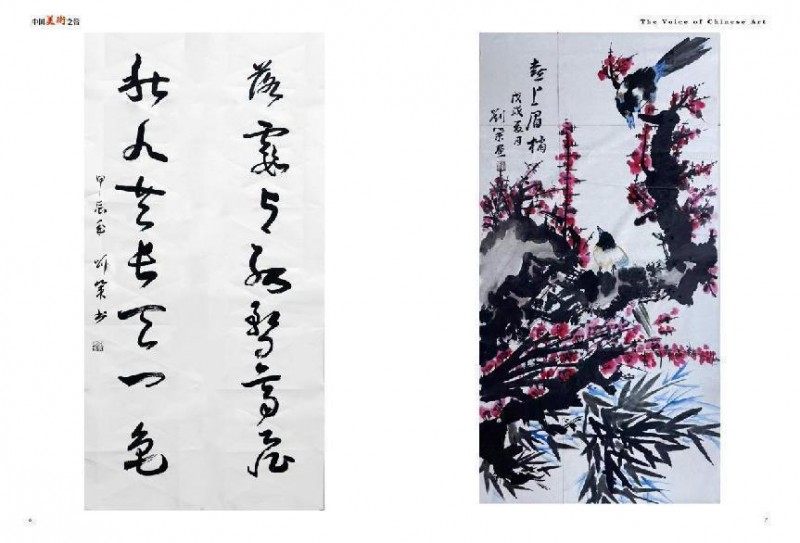 中国美術之音
The Voice of Chinese Art
落霞与孤鹜齊飛
秋水共長天一色
甲辰年 刘策书
喜上眉梢
戊戌夏月
劉策画
6
7